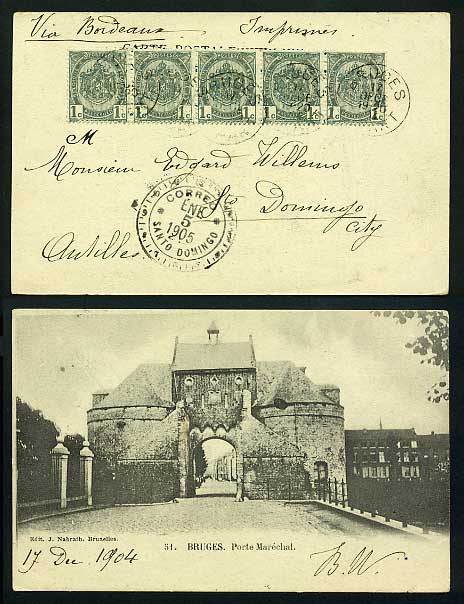 Via Bordeaux Imprimés
CARTE POSTALE
1c 1c 1c 1c 1c
M
Monsieur Edgard Willems
Sto Domingo
City
Antilles
CORREO
ENE
5
1905
SANTO DOMINGO
Edit. J. Nahrath, Bruxelles.
51. BRUGES. Porte Maréchal.
17 Dec 1904 B.W.